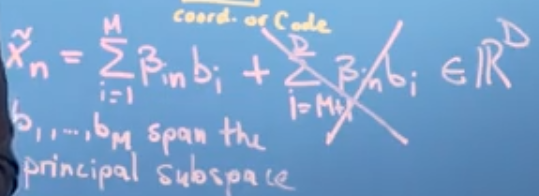 coord. or Code
x̃ₙ = Σ_{i=1}^{M} βᵢₙ bᵢ + Σ_{i=M+1}^{D} βᵢₙ bᵢ ∈ ℝᴰ
b₁,...,b_M span the
principal subspace